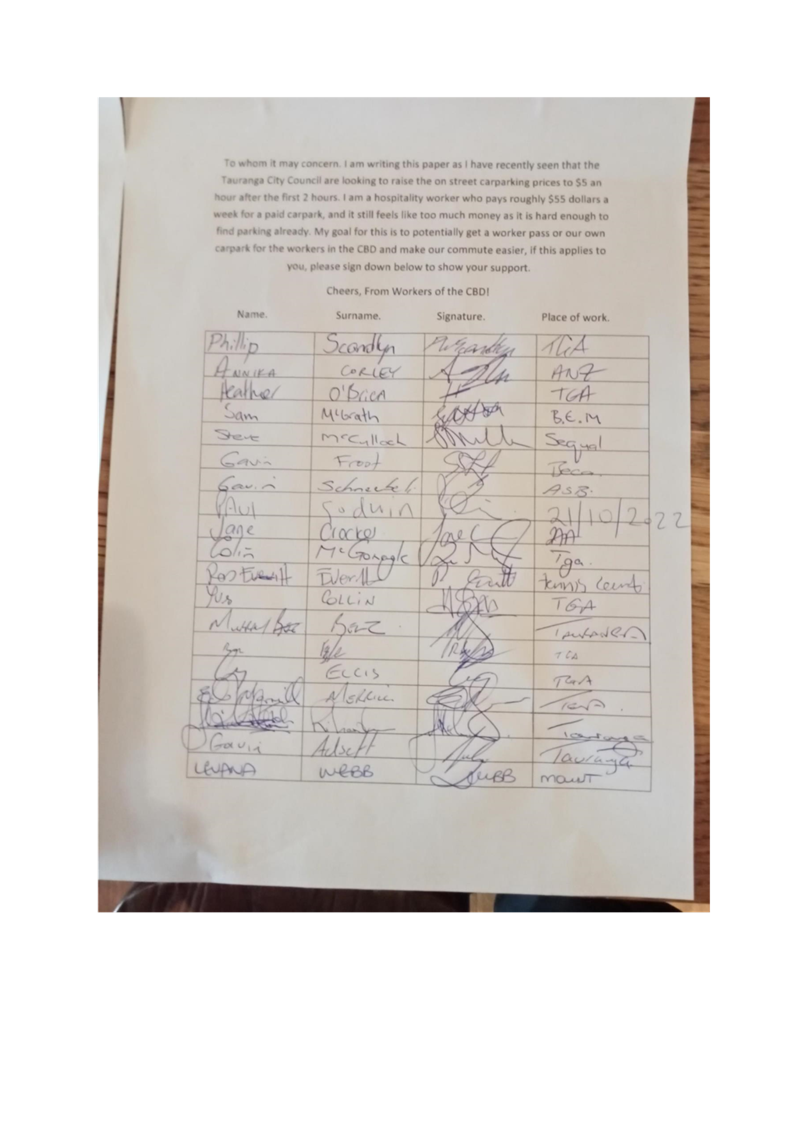 To whom it may concern. I am writing this paper as I have recently seen that the
Tauranga City Council are looking to raise the on street carparking prices to $5 an
hour after the first 2 hours. I am a hospitality worker who pays roughly $55 dollars a
week for a paid carpark, and it still feels like too much money as it is hard enough to
find parking already. My goal for this is to potentially get a worker pass or our own
carpark for the workers in the CBD and make our commute easier, if this applies to
you, please sign down below to show your support.
Cheers, From Workers of the CBD!
Name. Surname. Signature. Place of work.
Phillip Scandlyn TGA
ANNIKA CORLEY ANZ
Heather O'Brien TGA
Sam McGrath B.E.M
Steve McCulloch Sequal
Gavin Frost Beca
Gavin ASB.
PAUL Godwin 21/10/2022
Jane Crocker AA
Colin Tga.
Everitt tennis
COLLIN TGA
TGA
ELLIS TGA
MERRILL TGA.
Tauranga
Gavin Adsett Tauranga
LEVANA WEBB WEBB MOUNT